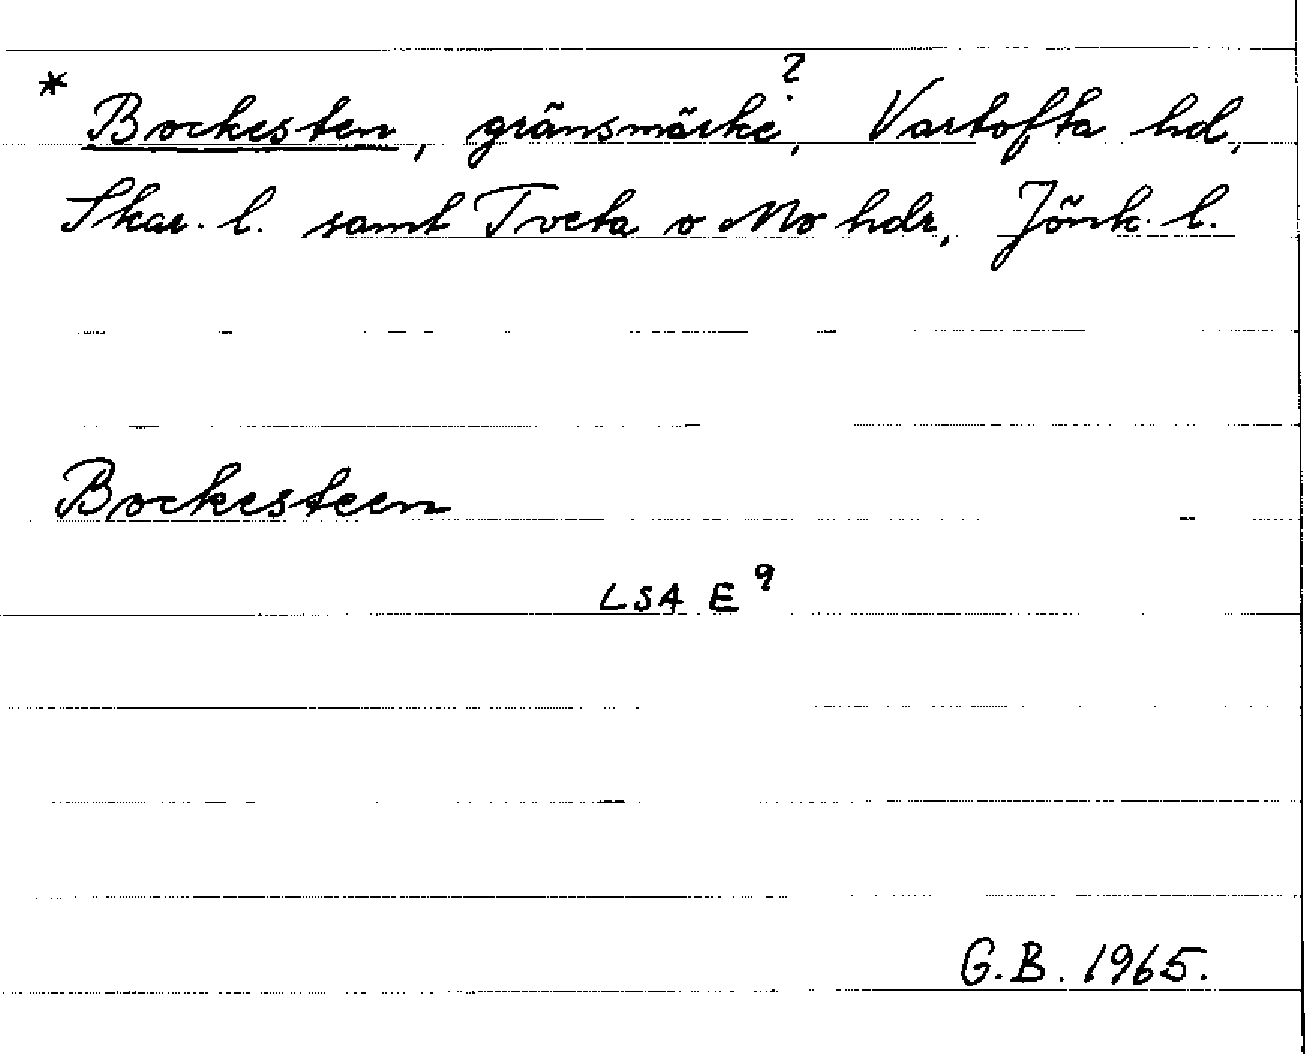 * Bockesten, gränsmärke?, Vartofta hd,
Skar. l. samt Tveta o Mo hdr, Jönk. l.
Bockesteen
LSA E⁹
G.B. 1965.